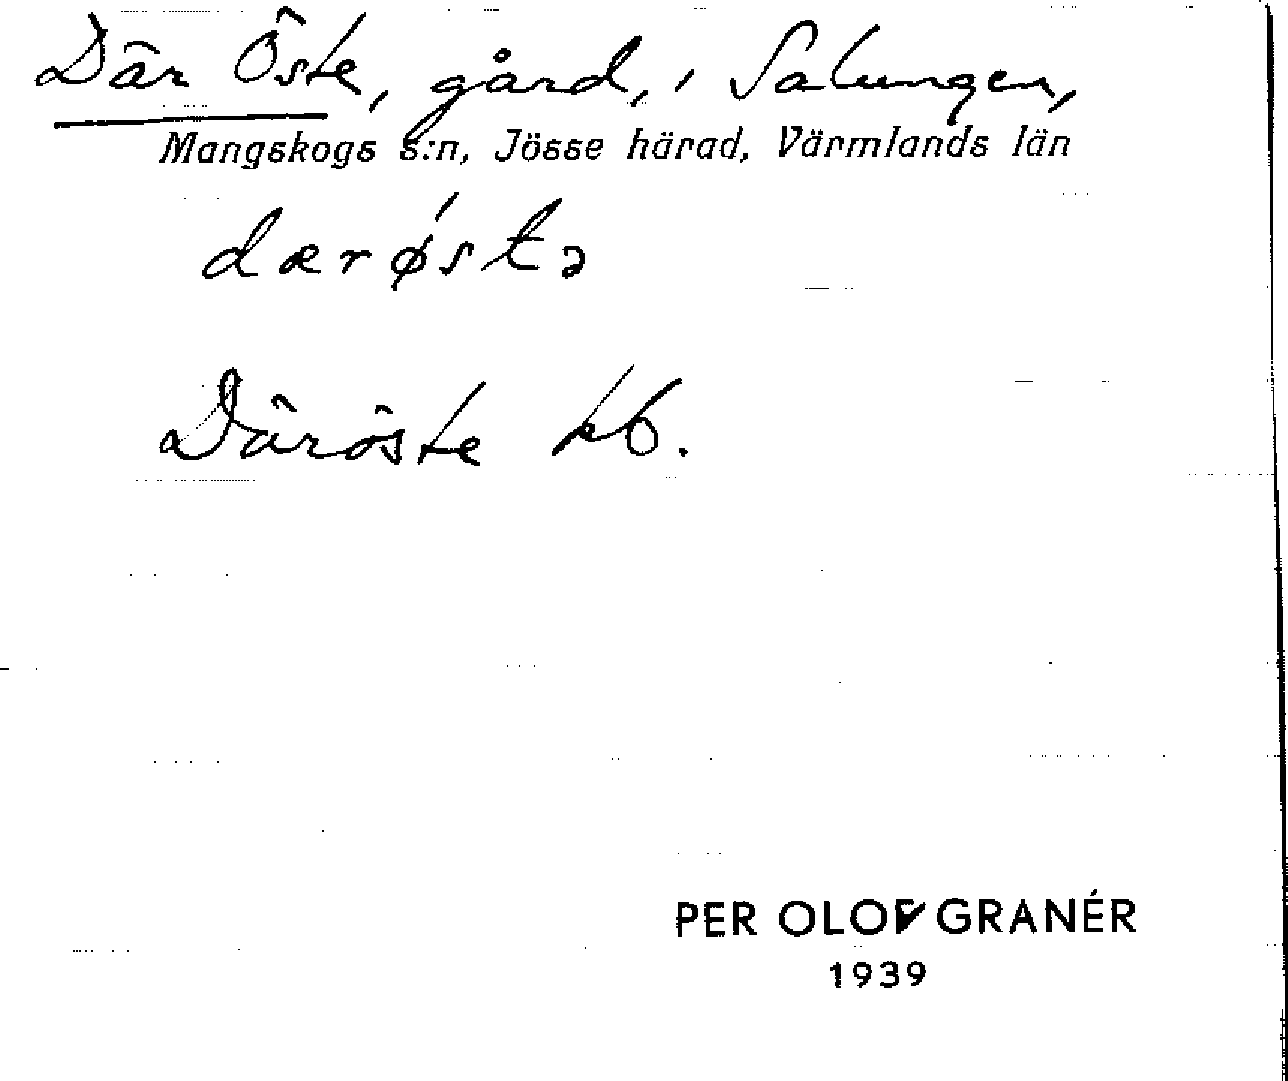 Där Öste, gård, i Salungen,
Mangskogs s:n, Jösse härad, Värmlands län
dærøstə
Däröste kb.
PER OLOF GRANÉR
1939